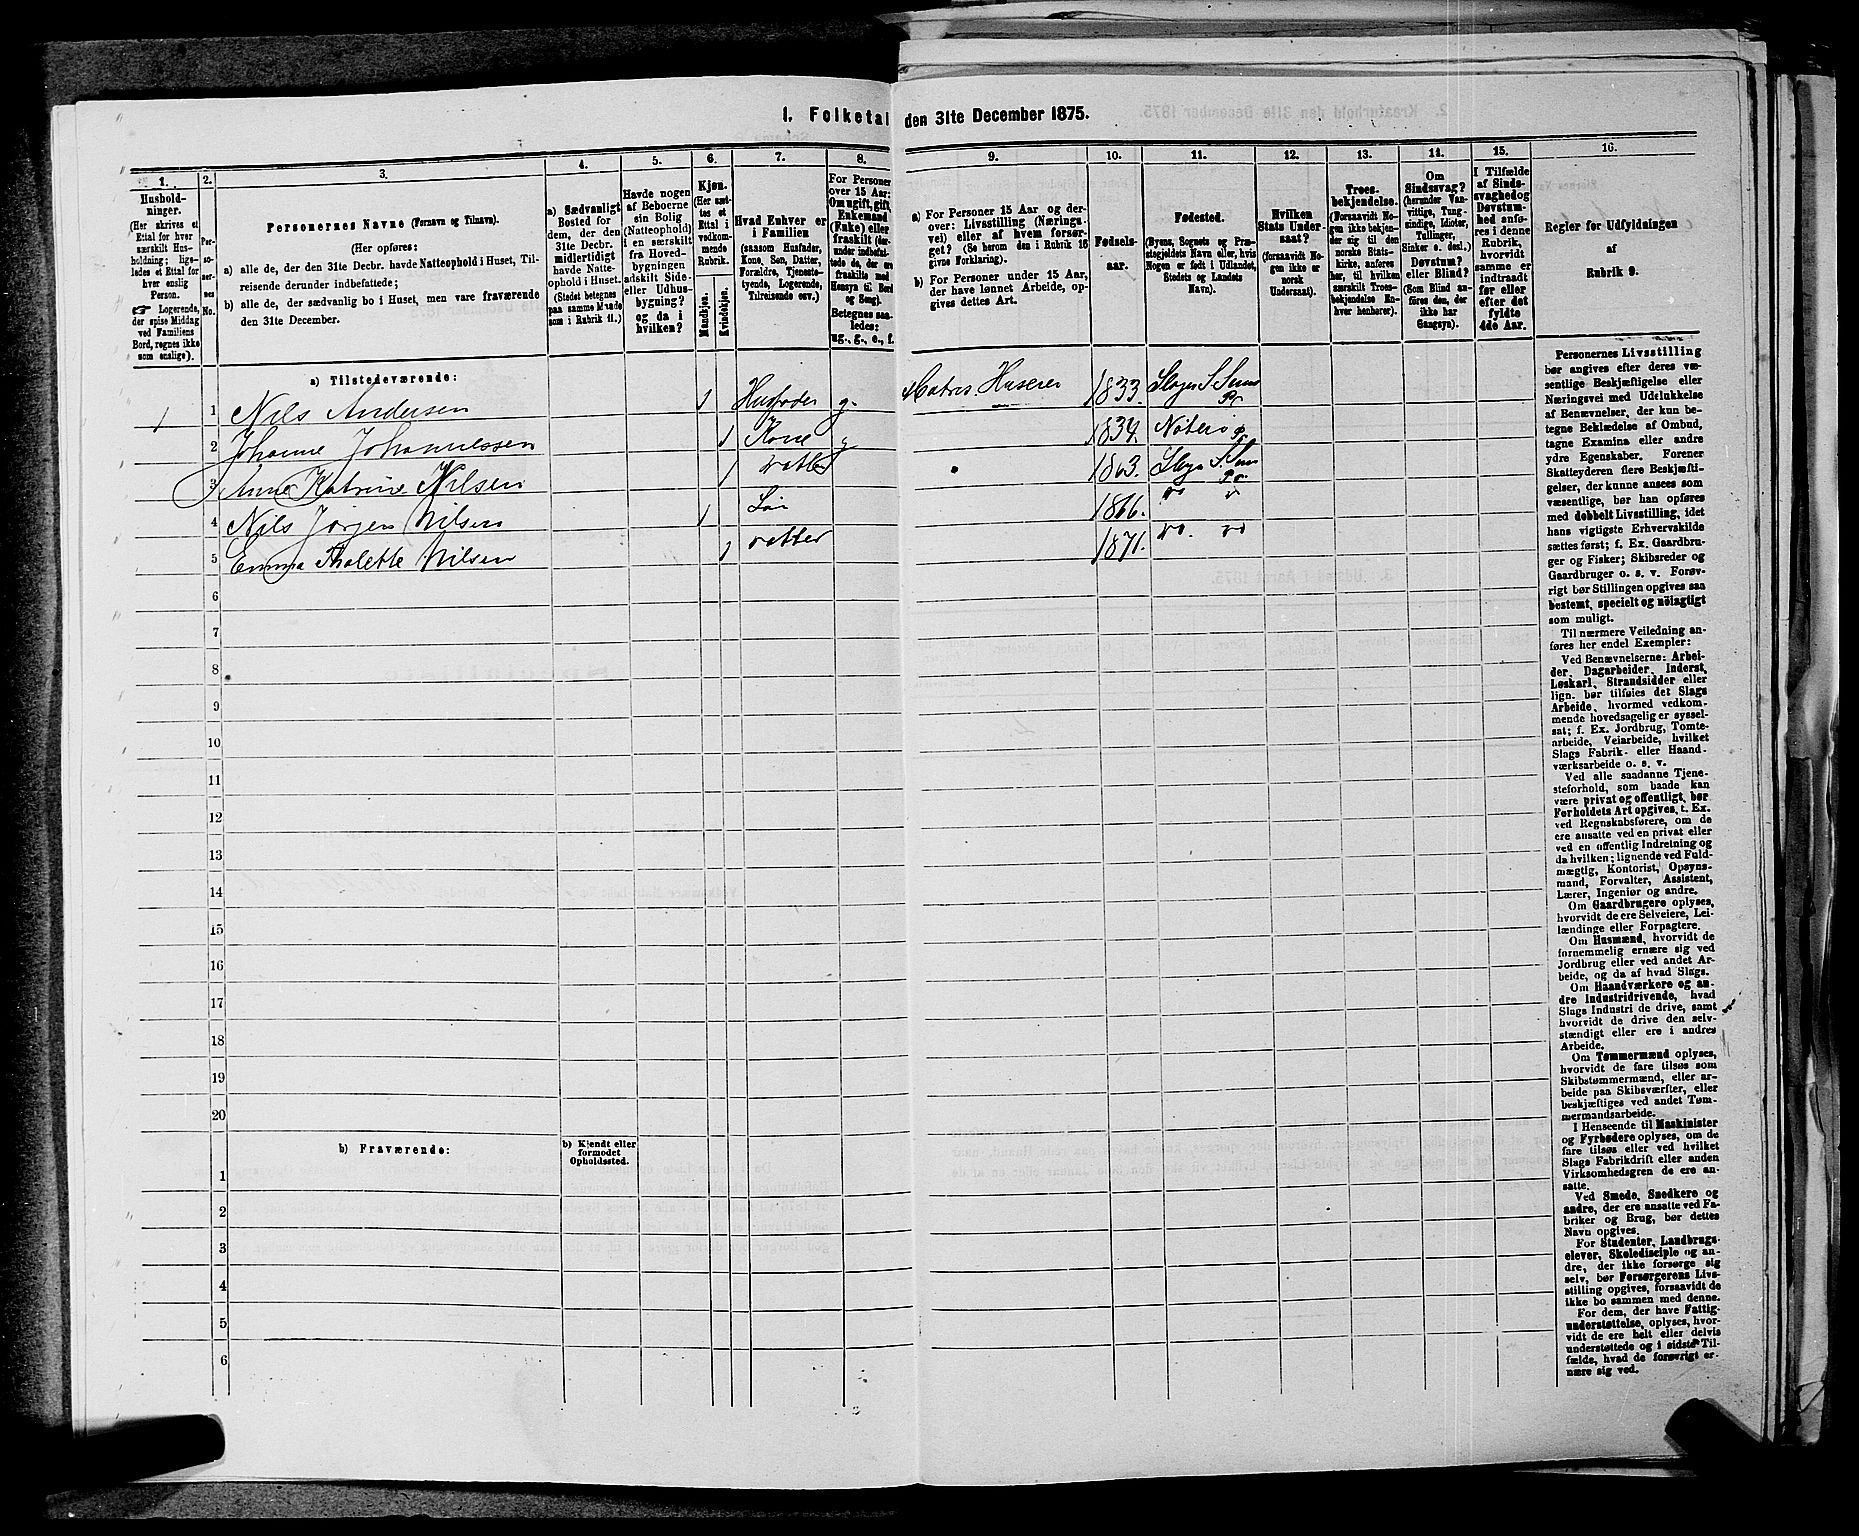 1. Folketal den 31te December 1875.
1.
2.
3.
4.
5.
6.
7.
8.
9.
10.
11.
12.
13.
14.
15.
16.
Hushold-
ninger.
(Her skrives et
Ettal for hver
særskilt Hus-
holdning; lige-
ledes et Ettal for
hver enslig
Person.
☞ Logerende,
der spise Middag
ved Familiens
Bord, regnes ikke
som enslige).
Per-
so-
ner-
nes
No.
Personernes Navne (Fornavn og Tilnavn).
(Her opføres:
a) alle de, der den 31te Decbr. havde Natteophold i Huset, Til-
reisende derunder indbefattede;
b) alle de, der sædvanlig bo i Huset, men vare fraværende
den 31te December.
a) Sædvanligt
Bosted for
dem, der den
31te Decbr.
midlertidigt
havde Natte-
ophold i Huset.
(Stedet betegnes
paa samme Maade
som i Rubrik 11.)
Havde nogen
af Beboerne
sin Bolig
(Natteophold)
i en særskilt
fra Hoved-
bygningen
adskilt Side-
eller Udhus-
bygning?
og da i
hvilken?
Kjøn.
(Her sæt-
tes et
Ettal i
vedkom-
mende
Rubrik.
Mandkjøn.
Kvindekjøn.
Hvad Enhver er
i Familien
(saasom Husfader,
Kone, Søn, Datter,
Forældre, Tjeneste-
tyende, Logerende,
Tilreisende osv.)
For Personer
over 15 Aar:
Om ugift, gift,
Enkemand
(Enke) eller
fraskilt (der-
under indbefat-
tede de, der ere
fraskilte med
Hensyn til Bord
og Seng).
Betegnes saa-
ledes:
ug., g., e., f.
a) For Personer 15 Aar og der-
over: Livsstilling (Nærings-
vei) eller af hvem forsør-
get? (Se herom des i Rubrik 16
givne Forklaring).
b) For Personer under 15 Aar,
der have lønnet Arbeide, op-
gives dettes Art.
Fødsels-
aar.
Fødested.
(Byens, Sognets og Præ-
stegjeldets Navn eller, hvis
Nogen er født i Udlandet,
Stedets og Landets
Navn).
Hvilken
Stats Under-
saat?
(forsaavidt No-
gen ikke er
norsk
Undersaat).
Troes-
bekjendelse.
(Forsaavidt No-
gen ikke bekjen-
der sig til den
norske Stats-
kirke, anføres
her, til hvilken
særskilt Troes-
bekjendelse En-
hver henhører).
Om
Sindssvag?
(herunder Van-
vittige, Tung-
sindige, Idioter,
Tullinger,
Sinker o. desl.)
Døvstum?
eller Blind?
(Som Blind an-
føres den, der
ikke har
Gangsyn).
I Tilfælde
af Sinds-
svaghed og
Døvstum-
hed anfø-
res i denne
Rubrik,
hvorvidt
samme er
Indtraadt
før eller
efter det
fyldte
4de Aar.
Regler for Udfyldningen
af
Rubrik 9.
a) Tilstedeværende:
1 1 Nils Andersen 1 Husfader g. Matros. Huseier 1833. Slagn S Sems Pr
2 Johanne Johannessen 1 Kone g 1834. Nøterø Pr
3 Anne Katrine Nilsen 1 datter 1863. Slagn S Sems Pr
4 Nils Jørgen Nilsen 1 Søn 1866. do do
5 Emma Tholette Nilsen 1 datter 1871. do. do
6
7
8
9
10
11
12
13
14
15
16
17
18
19
20
b) Fraværende:
b) Kjendt eller
formodet
Opholdssted.
1
2
3
4
5
6
Personernes Livsstilling
bør angives efter deres væ-
sentlige Beskjæftigelse eller
Næringsvei med Udelukkelse
af Benævnelser, der kun be-
tegne Beklædelse af Ombud,
tagne Examina eller andre
ydre Egenskaber. Forener
Skatteyderen flere Beskjæfti-
gelser, der kunne ansees som
væsentlige, bør han opføres
med dobbelt Livsstilling, idet
hans vigtigste Erhvervskilde
sættes først; f. Ex. Gaardbru-
ger og Fisker; Skibsreder og
Gaardbruger o. s. v. Forøv-
rigt bør Stillingen opgives saa
bestemt, specielt og nöiagtigt
som muligt.
Til nærmere Veiledning an-
føres her endel Exempler:
Ved Benævnelserne: Arbei-
der, Dagarbeider, Inderst,
Løskarl, Strandsidder eller
lign. bør tilføies det Slags
Arbeide, hvormed vedkom-
mende hovedsagelig er syssel-
sat; f. Ex. Jordbrug, Tomte-
arbeide, Veiarbeide, hvilket
Slags Fabrik- eller Haand-
værksarbeide o. s. v.
Ved alle saadanne Tjene-
steforhold, som baade kan
være privat og offentligt, bør
Forholdets Art opgives, t. Ex.
ved Regnskabsførere, om de
ere ansatte ved en privat eller
ved en offentlig Indretning og
da hvilken; lignende ved Fuld-
mægtig, Kontorist, Opsyns-
mand, Forvalter, Assistent,
Lærer, Ingeniør og andre.
Om Gaardbrugere oplyses,
hvorvidt de ere Selveiere, Lei-
lændinge eller Forpagtere.
Om Husmænd, hvorvidt de
fornemmelig ernære sig ved
Jordbrug eller ved andet Ar-
beide, og da af hvad Slags.
Om Haandværkere og an-
dre Industridrivende, hvad
Slags Industri de drive, samt
hvorvidt de drive den selv-
stændigt eller ere i andres
Arbeide.
Om Tømmermænd oplyses,
hvorvidt de fare tilsøs som
Skibstømmermænd, eller ar-
beide paa Skibsværfter, eller
beskjæftiges ved andet Tøm-
mermandsarbeide.
I Henseende til Maskinister
og Fyrbødere oplyses, om de
fare tilsøs eller ved hvilket
Slags Fabrikdrift eller anden
Virksomhedsgren de ere an-
satte.
Ved Smede, Snedkere og
andre, der ere ansatte ved Fa-
briker og Brug, bør dettes
Navn opgives.
For Studenter, Landbrugs-
elever, Skoledisciple og an-
dre, der ikke forsørge sig
selv, bør Forsørgerens Livs-
stilling opgives, forsaavidt de
ikke bo sammen med denne.
For dem, der have Fattig-
understøttelse, oplyses, hvor-
vidt de ere helt eller delvis
understøttede og i sidste Til-
fælde, hvad de forøvrigt er-
nære sig ved.